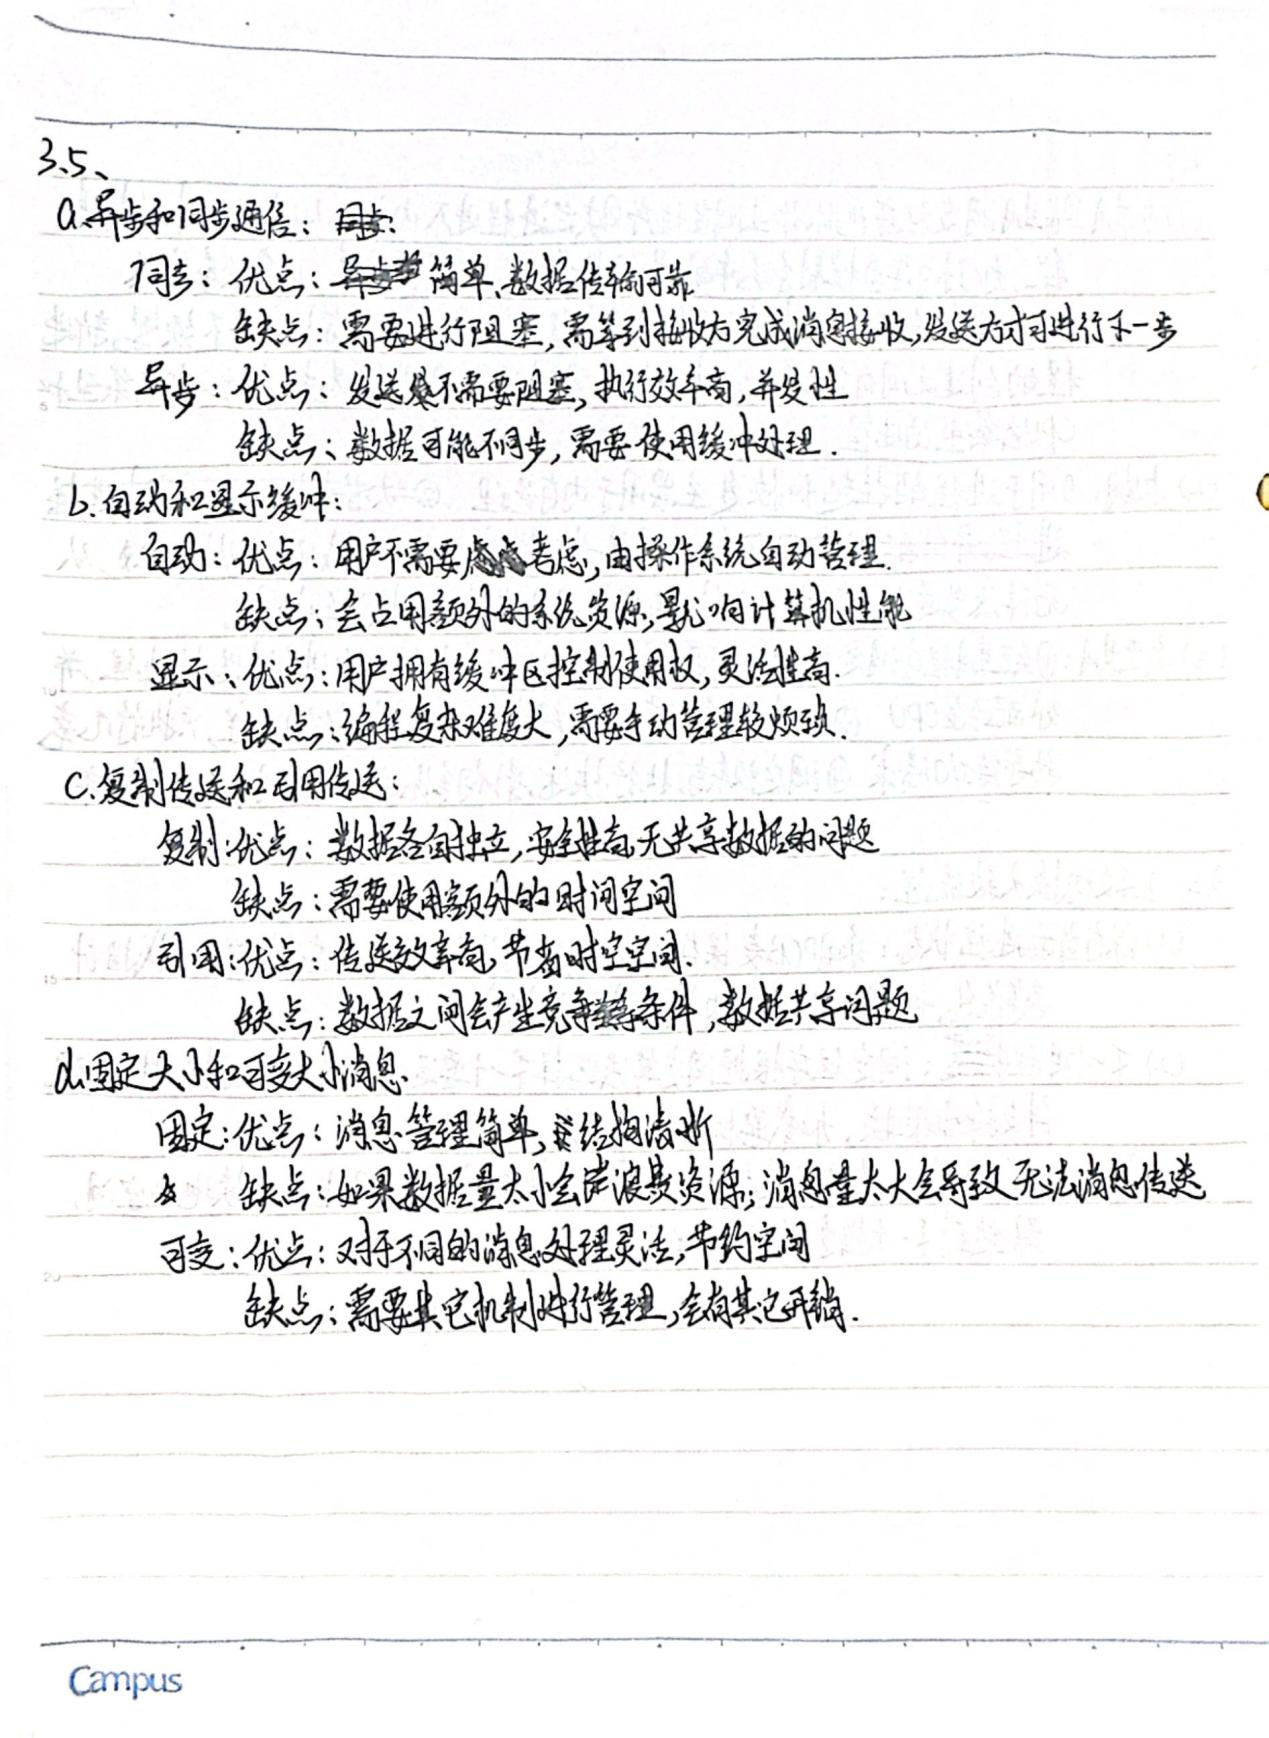 3.5、
a.异步和同步通信：同步:
同步：优点：异步 简单、数据传输可靠
缺点：需要进行阻塞，需等到接收方完成消息接收，发送方才可进行下一步
异步：优点：发送不需要阻塞，执行效率高，并发性
缺点：数据可能不同步，需要使用缓冲处理.
b.自动和显示缓冲：
自动：优点：用户不需要考虑，由操作系统自动管理.
缺点：会占用额外的系统资源，影响计算机性能
显示：优点：用户拥有缓冲区控制使用权，灵活性高.
缺点：编程复杂难度大，需要手动管理较烦琐.
C.复制传送和引用传送：
复制：优点：数据各自独立，安全性高，无共享数据的问题
缺点：需要使用额外的时间空间
引用：优点：传送效率高，节省时空空间.
缺点：数据之间会产生竞争条件，数据共享问题
d.固定大小和可变大小消息.
固定：优点：消息管理简单，结构清晰
缺点：如果数据量太小会浪费资源；消息量太大会导致无法消息传送
可变：优点：对于不同的消息处理灵活，节约空间
缺点：需要其它机制进行管理，会有其它开销.
Campus